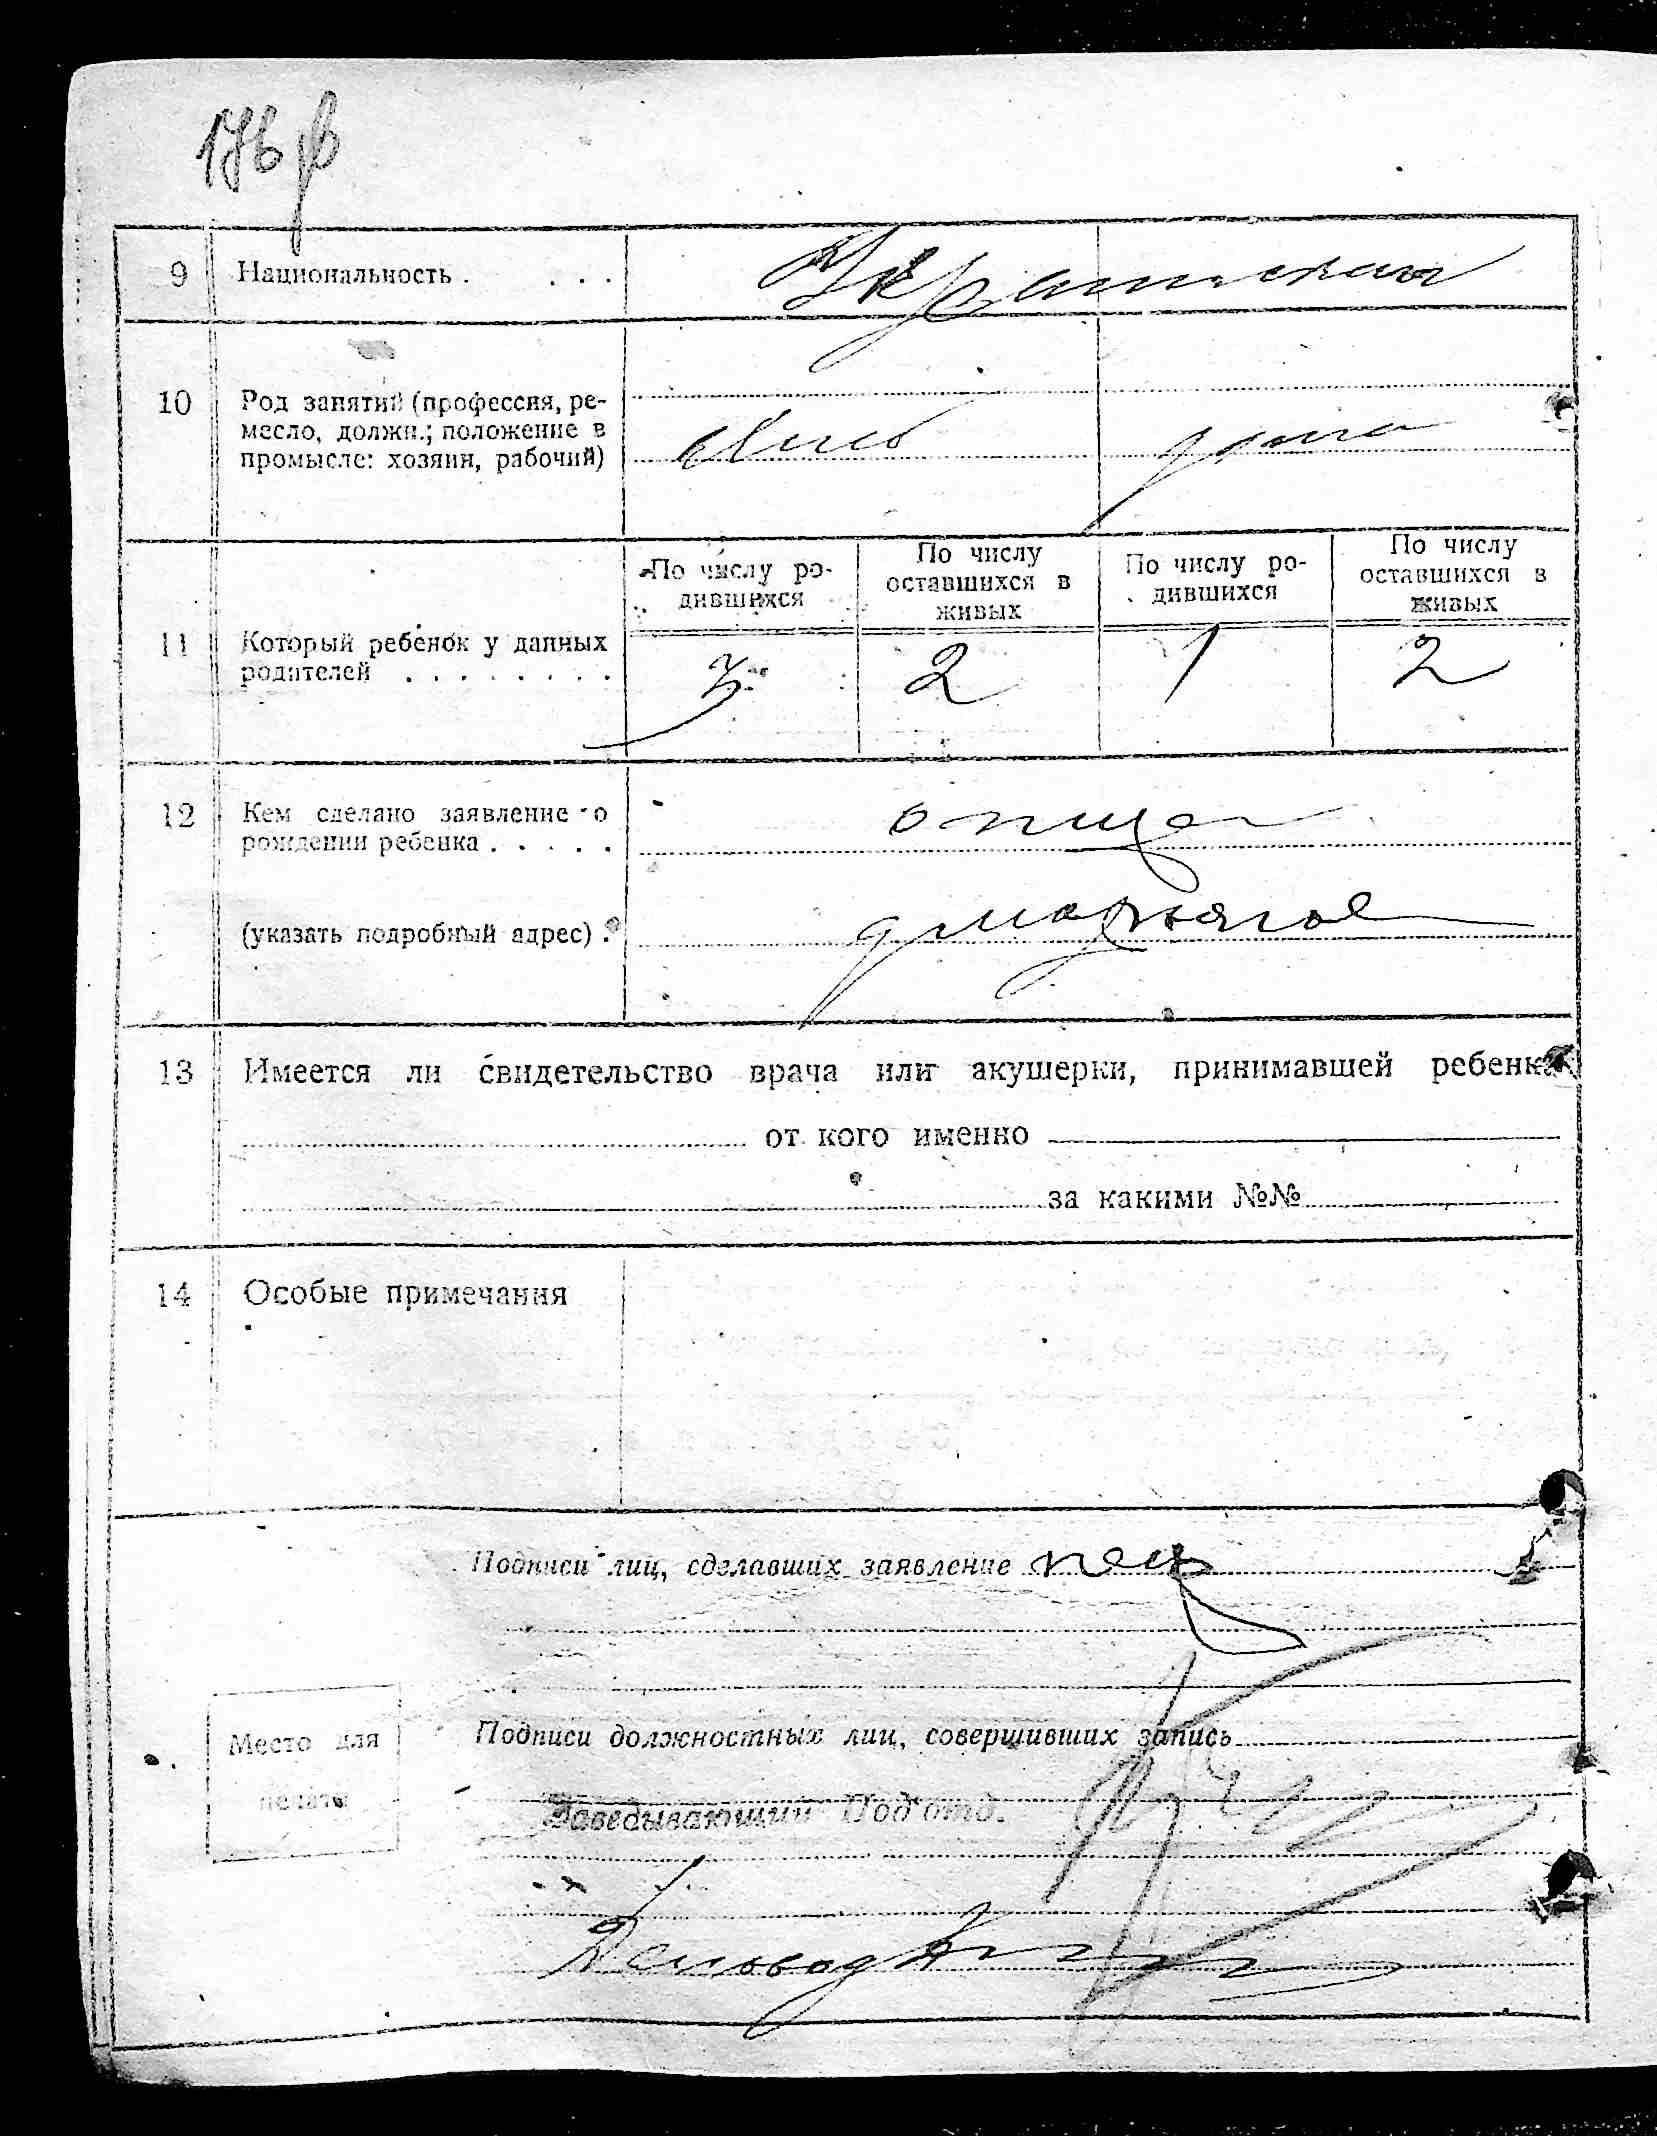 9 Национальность . . . . Украинская
10 Род занятий (профессия, ре-
месло, должн.; положение в
промысле: хозяин, рабочий)
По числу ро-
дившихся
По числу
оставшихся в
живых
По числу ро-
дившихся
По числу
оставшихся в
живых
11 Который ребенок у данных
родителей . . . . . . . . 3 2 1 2
12 Кем сделано заявление о
рождении ребенка . . . . . отцем
(указать подробный адрес) .
13 Имеется ли свидетельство врача или акушерки, принимавшей ребенка
от кого именно
за какими №№
14 Особые примечания
Подписи лиц, сделавших заявление
Место для
печати
Подписи должностных лиц, совершивших запись
Заведывающий Под'отд.
Деловод